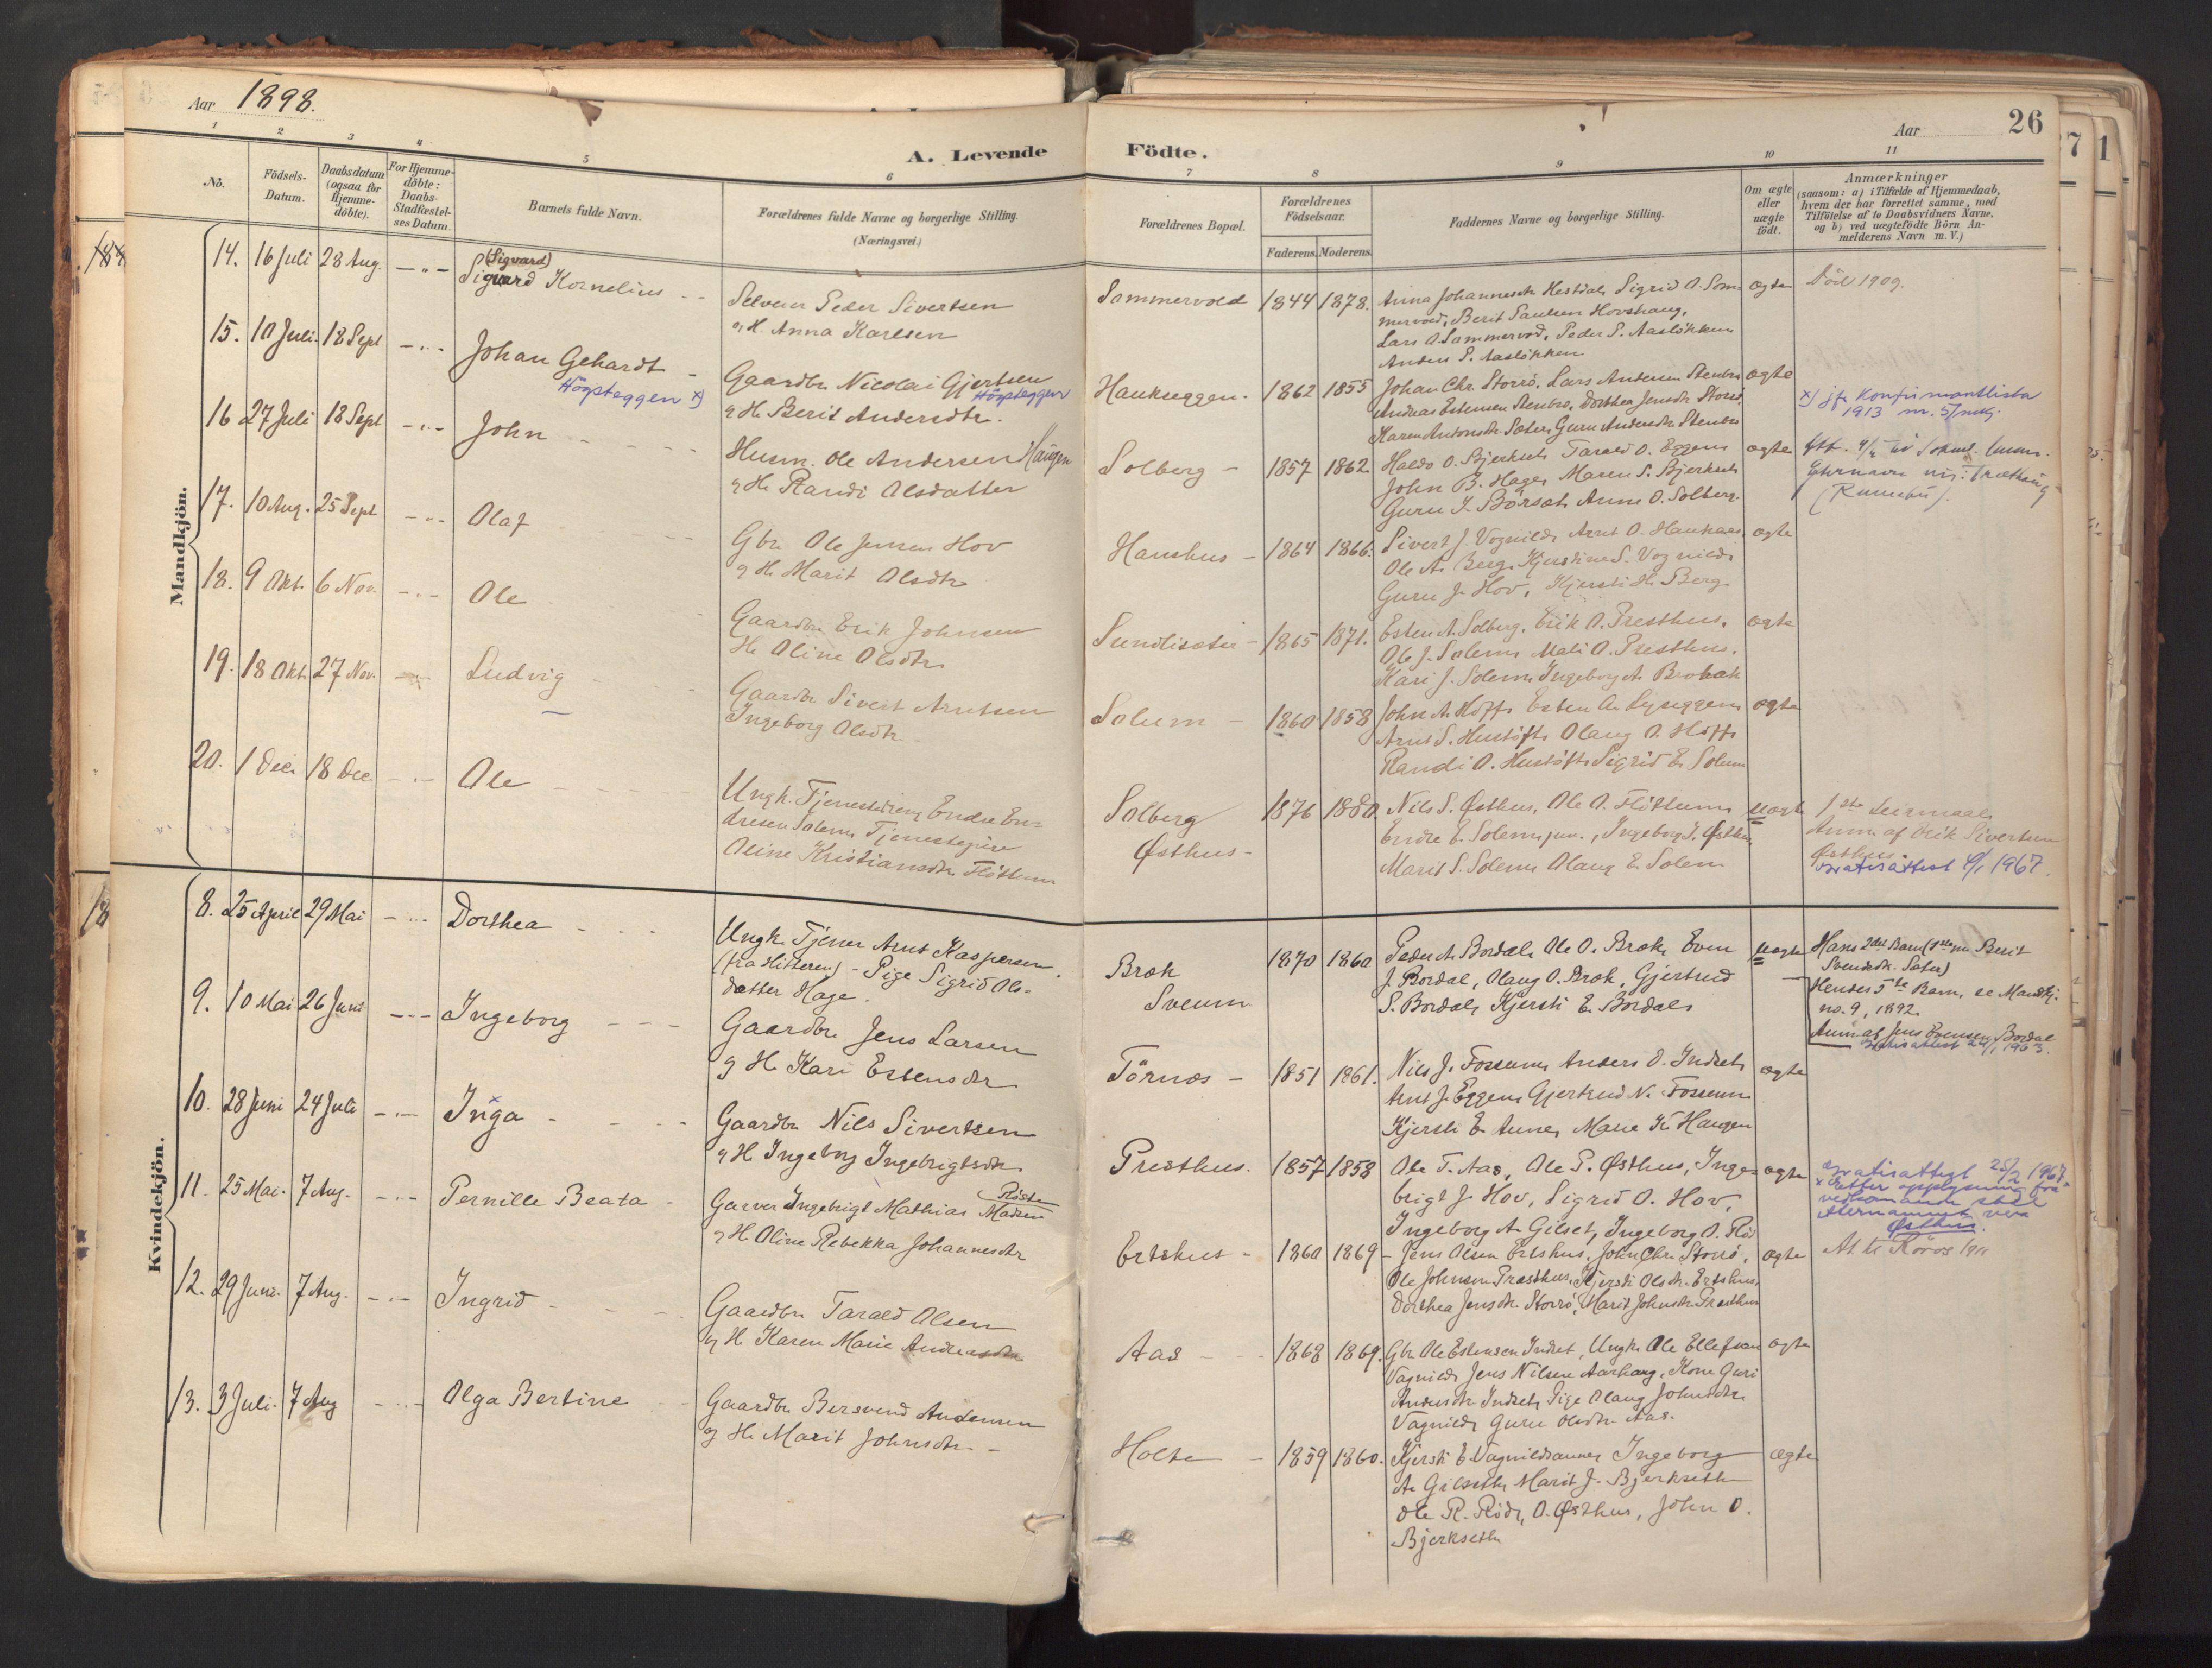 Aar 1898.
A. Levende
1 2 3 4 5 6
No.
Födsels-
Datum.
Daabsdatum
(ogsaa for
Hjemme-
döbte).
For Hjemme-
döbte:
Daabs-
Stadfæstel-
ses Datum.
Barnets fulde Navn.
Forældrenes fulde Navne og borgerlige Stilling.
(Næringsvei.)
Mandkjön.
14. 16 Juli 28 Aug. -„-
(Sigvard)
Sigvard Kornelius
Selveier Peder Sivertsen
og H. Anna Karlsen
15. 10 Juli. 18 Sept -„-
Johan Gehardt
Högsteggen x)
Gaardbr. Nicolai Gjertsen
Högsteggen
og H. Berit Andersdtr.
16 27 Juli 18 Sept -„-
John
Husm. Ole Andersen Haugen
og H. Randi Olsdatter
17. 10 Aug. 25 Sept -„-
Olaf
Gbr. Ole Jensen Hov
og H. Marit Olsdtr
18. 9 Okt. 6 Nov. -„-
Ole
Gaardbr. Erik Johnsen
H. Oline Olsdtr.
19. 18 Okt. 27 Nov.
Ludvig
Gaardbr. Sivert Arntsen
Ingeborg Olsdtr.
20. 1 Dec. 18 Dec. -„-
Ole
Ungk. Tjenestedreng Endre En-
dresen Solem, Tjenestepige
Oline Kristiansdtr. Flöttum
Kvindekjön.
8. 25 April 29 Mai -„-
Dorthea
Ungk. Tjener Arnt Kaspersen
(fra Hitteren) - Pige Sigrid Ols-
datter Hage.
9. 10 Mai 26 Juni -„-
Ingeborg
Gaardbr. Jens Larsen
og H. Kari Estensdtr
10. 28 Juni 24 Juli -„-
Inga x
Gaardbr. Nils Sivertsen
og H. Ingeborg Ingebrigtsdtr.
11. 25 Mai. 7 Aug. -„-
Pernille Beata
Garver Ingebrigt Mathias Madsen
og H. Oline Rebekka Johannesdtr
12. 29 Juni. 7 Aug. -„-
Ingrid
Gaardbr. Tarald Olsen
og H. Karen Marie Andreasdtr.
13. 3 Juli. 7 Aug -„-
Olga Bertine
Gaardbr. Bersvend Andersen
og H. Marit Johnsdtr.
Födte.
Aar
26
7 8 9 10 11
Forældrenes Bopæl.
Forældrenes
Födselsaar.
Faderens. Moderens.
Faddernes Navne og borgerlige Stilling.
Om ægte
eller
uægte
födt.
Anmærkninger
(saasom: a) i Tilfælde af Hjemmedaab,
hvem der har forrettet samme, med
Tilföielse af to Daabsvidners Navne,
og b) ved uægtefödte Börn An-
melderens Navn m. V.)
Sommervold 1844 1878.
Anna Johannesdtr. Hestdal, Sigrid O. Som-
mervold, Berit Paulsen Hovshaug,
Lars O. Sommervod, Peder P. Aaslökken
Anders P. Aaslökken
ægte
Död 1909.
Haukseggen. 1862 1855
Johan Chr. Storrö, Lars Andersen Stenbro
Andreas Estensen Stenbro, Dorthea Jensdtr. Storrö,
Karen Antonsdtr. Sæter, Guru Andersdtr. Stenbro
ægte
x) jfr. Konfirmantlista
1913 nr. 5/mkj.
Solberg 1857 1862.
Haldo O. Bjerkset, Tarald O. Eggen,
John B. Hage, Maren S. Bjerkset
Guru I. Börset, Anne O. Solberg.
ægte
Haushus 1864 1866.
Sivert J. Vognild, Arnt O. Haukaas,
Ole A. Berg, Kjerstine S. Vognild
Guru J. Hov, Kjersti H. Berg
ægte
Sundlisæter 1865 1871.
Esten A. Solberg, Erik O. Presthus,
Ole J. Solem, Mali O. Presthus,
Kari J. Solem, Ingeborg A. Brobak
ægte
Solum 1860 1858
John A. Hoff, Esten A. Lyseggen,
Arnt S. Hustöft, Olaug O. Hoff
Randi O. Hustöft, Sigrid E. Solum
ægte
Solberg
Østhus
1876 1880.
Nils S. Østhus, Ole O. Flöttum,
Endre E. Solem jun., Ingeborg J. Østhus
Marit S. Solem, Olaug E. Solem
uægte
1ste Leiermaal,
Anm. af Erik Sivertsen
Østhus.
Gratisattest 6/1 1967.
Bræk
Sveum
1870 1860
Peder A. Bordal, Ole O. Bræk, Even
J. Bordal, Olaug O. Bræk, Gjertrud
S. Bordal, Kjersti E. Bordal
uægte
Hans 2det Barn (1ste m. Berit
Svendsdtr. Sæter)
Hendes 5te Barn, se Mandkj.
no. 9, 1892.
Anm. af Jens Evensen Bordal
Törnæs 1851 1861.
Nils J. Fossum, Anders O. Indset,
Arnt J. Eggen, Gjertrud N. Fossum
Kjersti E. Aunes, Marie K. Haugen
ægte
Presthus. 1857 1858
Ole T. Aas, Ole P. Østhus, Inge-
brigt J. Hov, Sigrid O. Hov,
Ingeborg A. Gilset, Ingeborg O. Röd
ægte
Gratisattest 25/2 1967.
x Etter opplysning fra
vedkommende skal
etternavnet være
Østhus.
Ertshus 1860 1869
Jens Olsen Ertshus, John Chr. Storrö,
Ole Johnsen Præsthus, Kjersti Olsdtr. Ertshus,
Dorthea Jensdtr. Storrö, Marit Johnsdtr. Præsthus
ægte
Aas 1868 1869.
Gbr. Ole Estensen Indset, Ungk. Ole Ellefsen
Vagnild, Jens Nilsen Aarhaug, Kone Guri
Andersdtr. Indset, Pige Olaug Johnsdtr.
Vagnild, Guru Olsdtr. Aas.
ægte
Holte 1859 1860.
Kjersti E. Vagnildsaunes, Ingeborg
A. Gilseth, Marit J. Bjerkseth
Ole R. Röd, O. Østhus, John O.
Bjerkseth
ægte